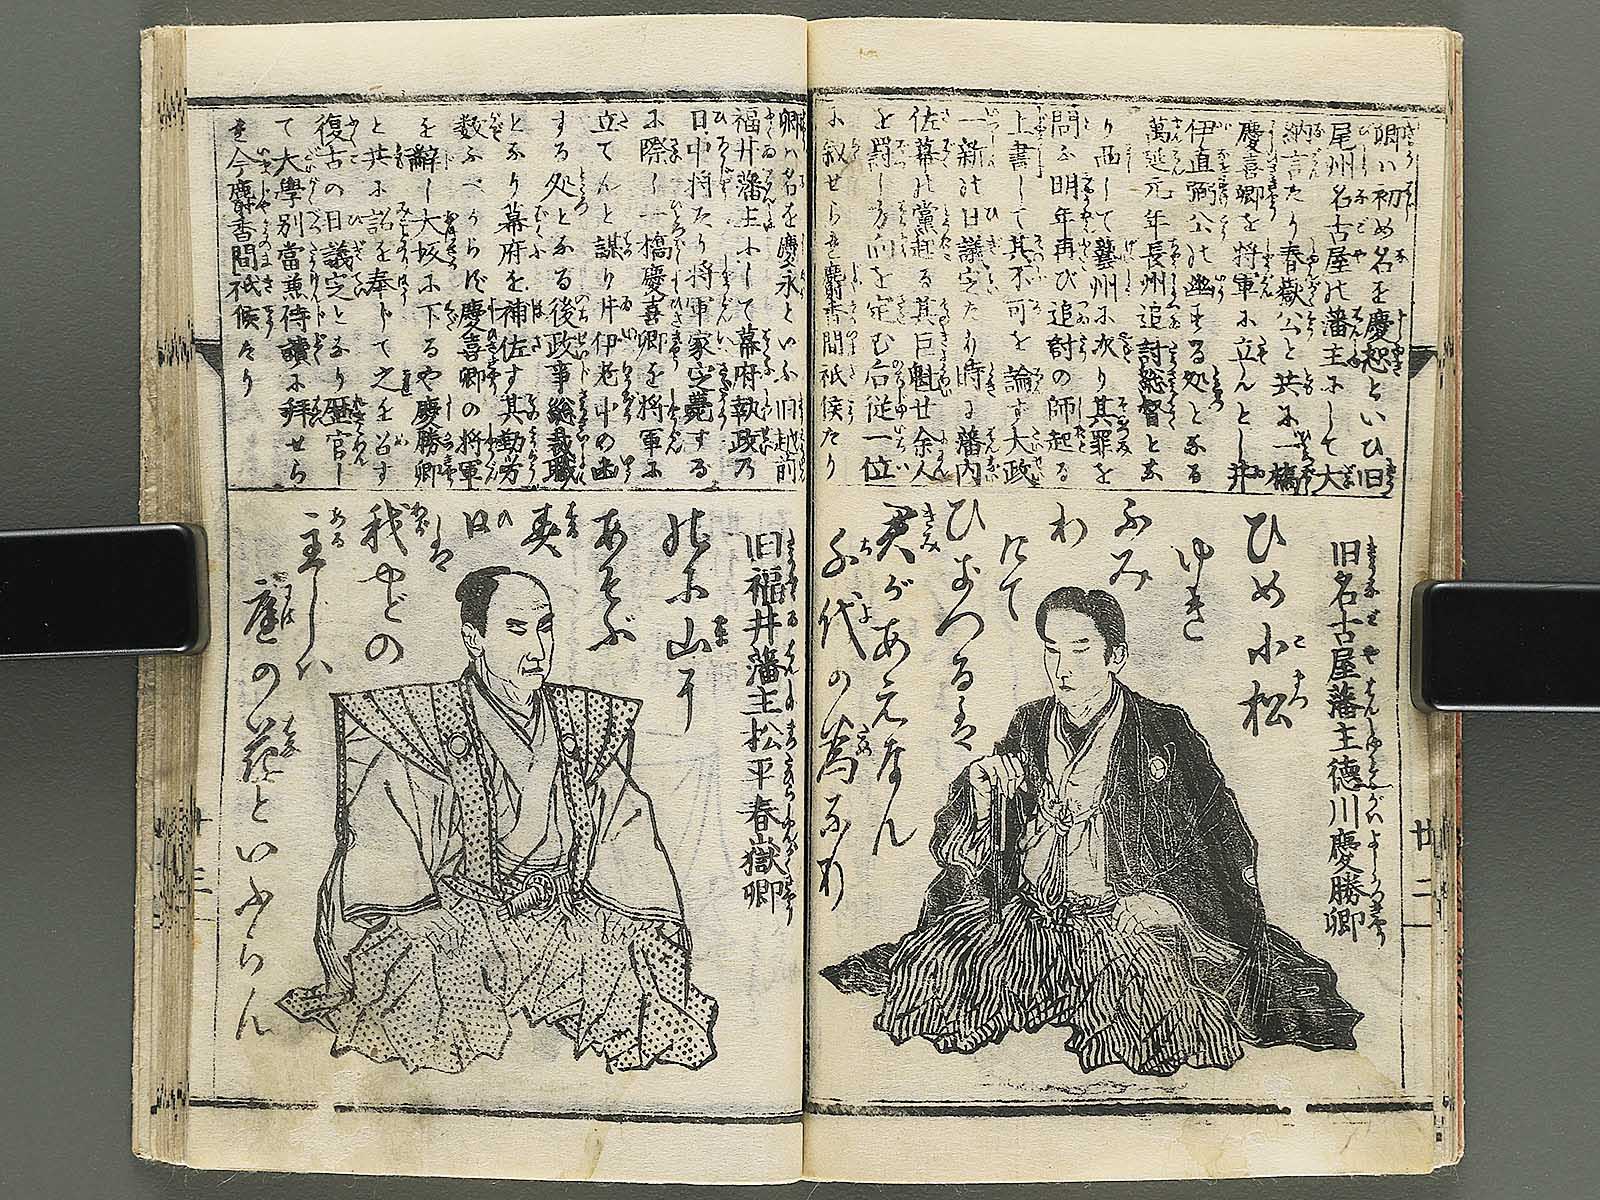 卿ハ初め名を慶恕といひ旧
尾州名古屋の藩主にして大
納言たり春嶽公と共に一橋
慶喜卿を将軍に立んとし井
伊直弼公の幽する処となる
萬延元年長州追討総督とな
り西して藝州に次り其罪を
問ふ明年再び追討の師起る
上書して其不可を論す大政
一新の日議定たり時に藩内
佐幕の黨起る其巨魁廿余人
を罰し方向を定む后従一位
に叙せられ麝香間祗候たり
旧名古屋藩主德川慶勝卿
ひめ小松
ゆき
ふみ
わ
けて
ひきつるは
君があえなん
千代の為なり
廿二
卿ハ名を慶永といふ旧越前
福井藩主にして幕府執政乃
日中将たり将軍家定薨する
に際し一橋慶喜卿を将軍に
立てんと謀り井伊老中の幽
する処となる後政事総裁職
となり幕府を補佐す其勤労
数ふべからず慶喜卿の将軍
を辭し大坂に下るや慶勝卿
と共に詔を奉じて之を召す
復古の日議定となり歴官し
て大學別當兼侍讀に拜せら
を今麝香間祗候たり
旧福井藩主松平春嶽卿
のに山に
あそぶ
春
日は
我やどの
主じハ
庭の花といふらん